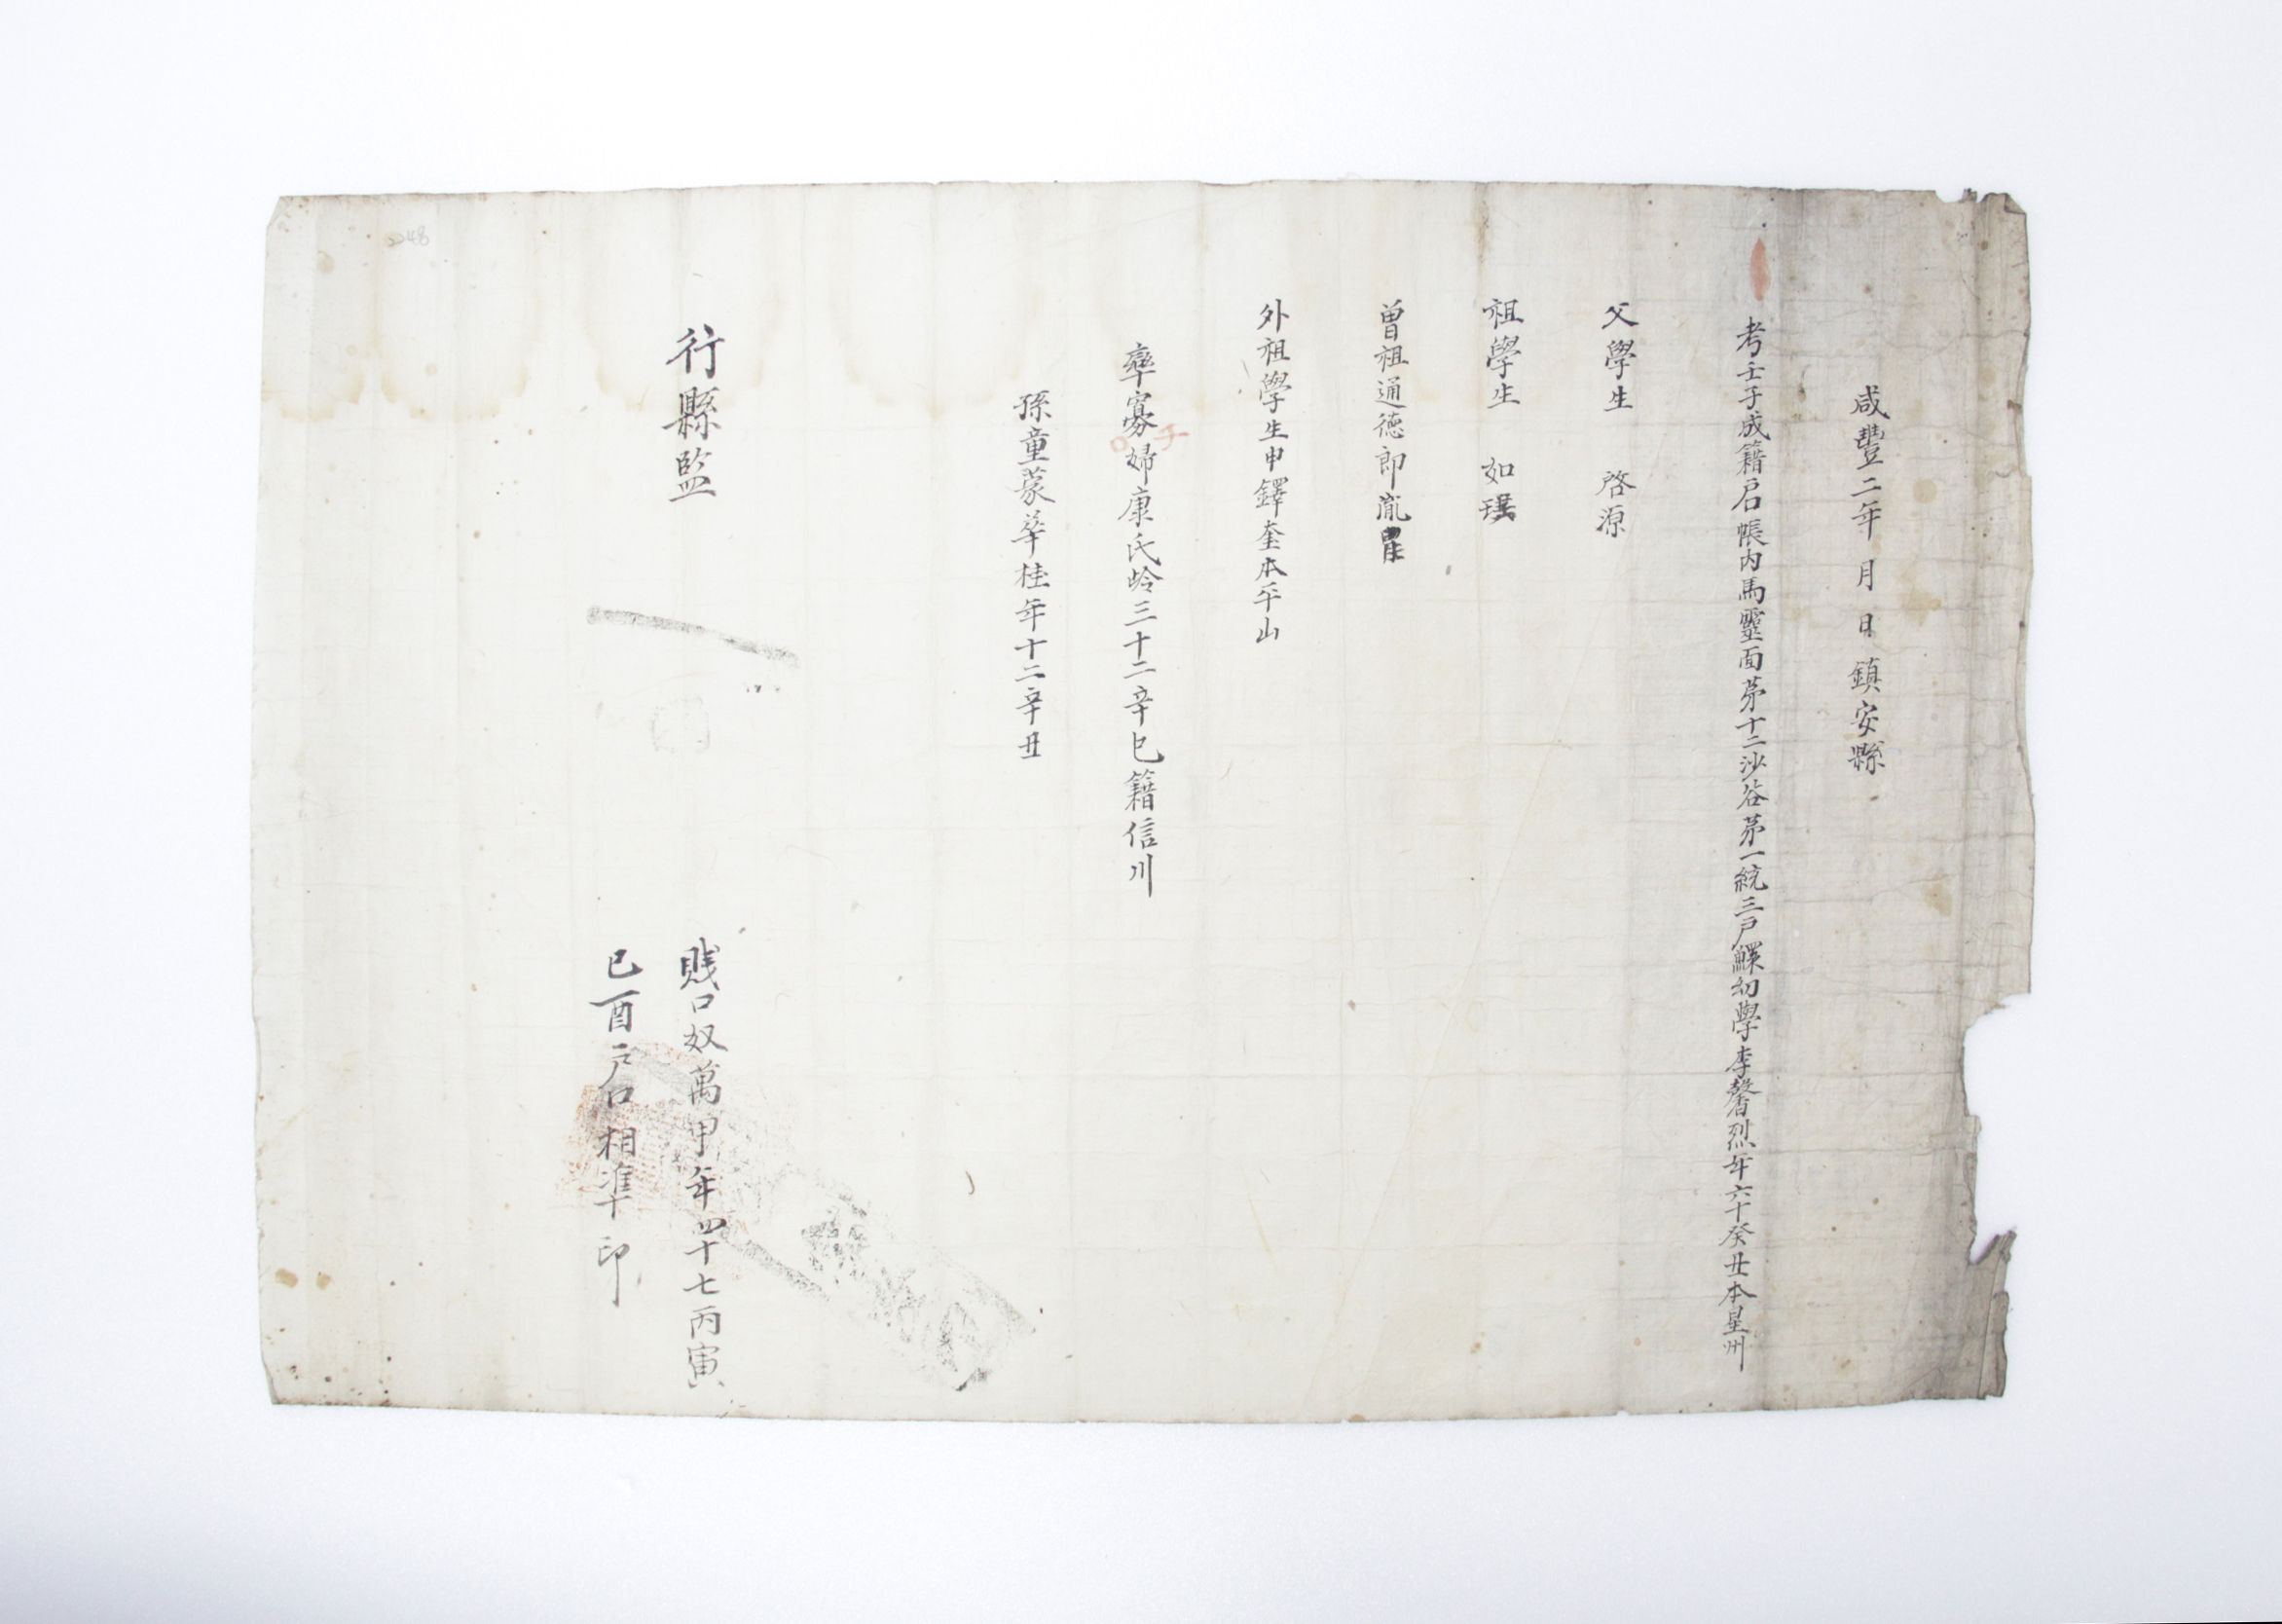 咸豐二年 月 日 鎮安縣
考壬子成籍戶帳内馬靈面苐十二沙谷苐一統三戶鰥幼學李馨烈年六十癸丑本星州
父學生 啓源
祖學生 如璞
曽祖通徳郎胤
外祖學生申鐸奎本平山
率寡婦康氏齡三十二辛巳籍信川
孫童蒙華桂年十二辛丑
行縣監
賎口奴萬甲年四十七丙寅
已酉戶口相準印
2248